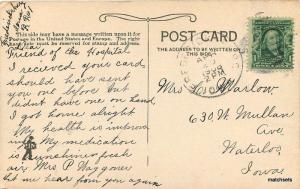 This side may have a message written upon it for
Postage in United States and Europe. The right
hand side must be reserved for stamp and address.
Friend of the Hospital
I recieved your card
should have sent
you one before but
didnt have one on hand
I got home alright
My health is improv
ing My medication
is sunshine & fresh
air Mrs P Waggoner
let me hear from you again
POST CARD
THE ADDRESS TO BE WRITTEN ON
THIS SIDE
Mrs Marlow
630 W Mullan
Ave,
Waterloo
Iowa
matchsets